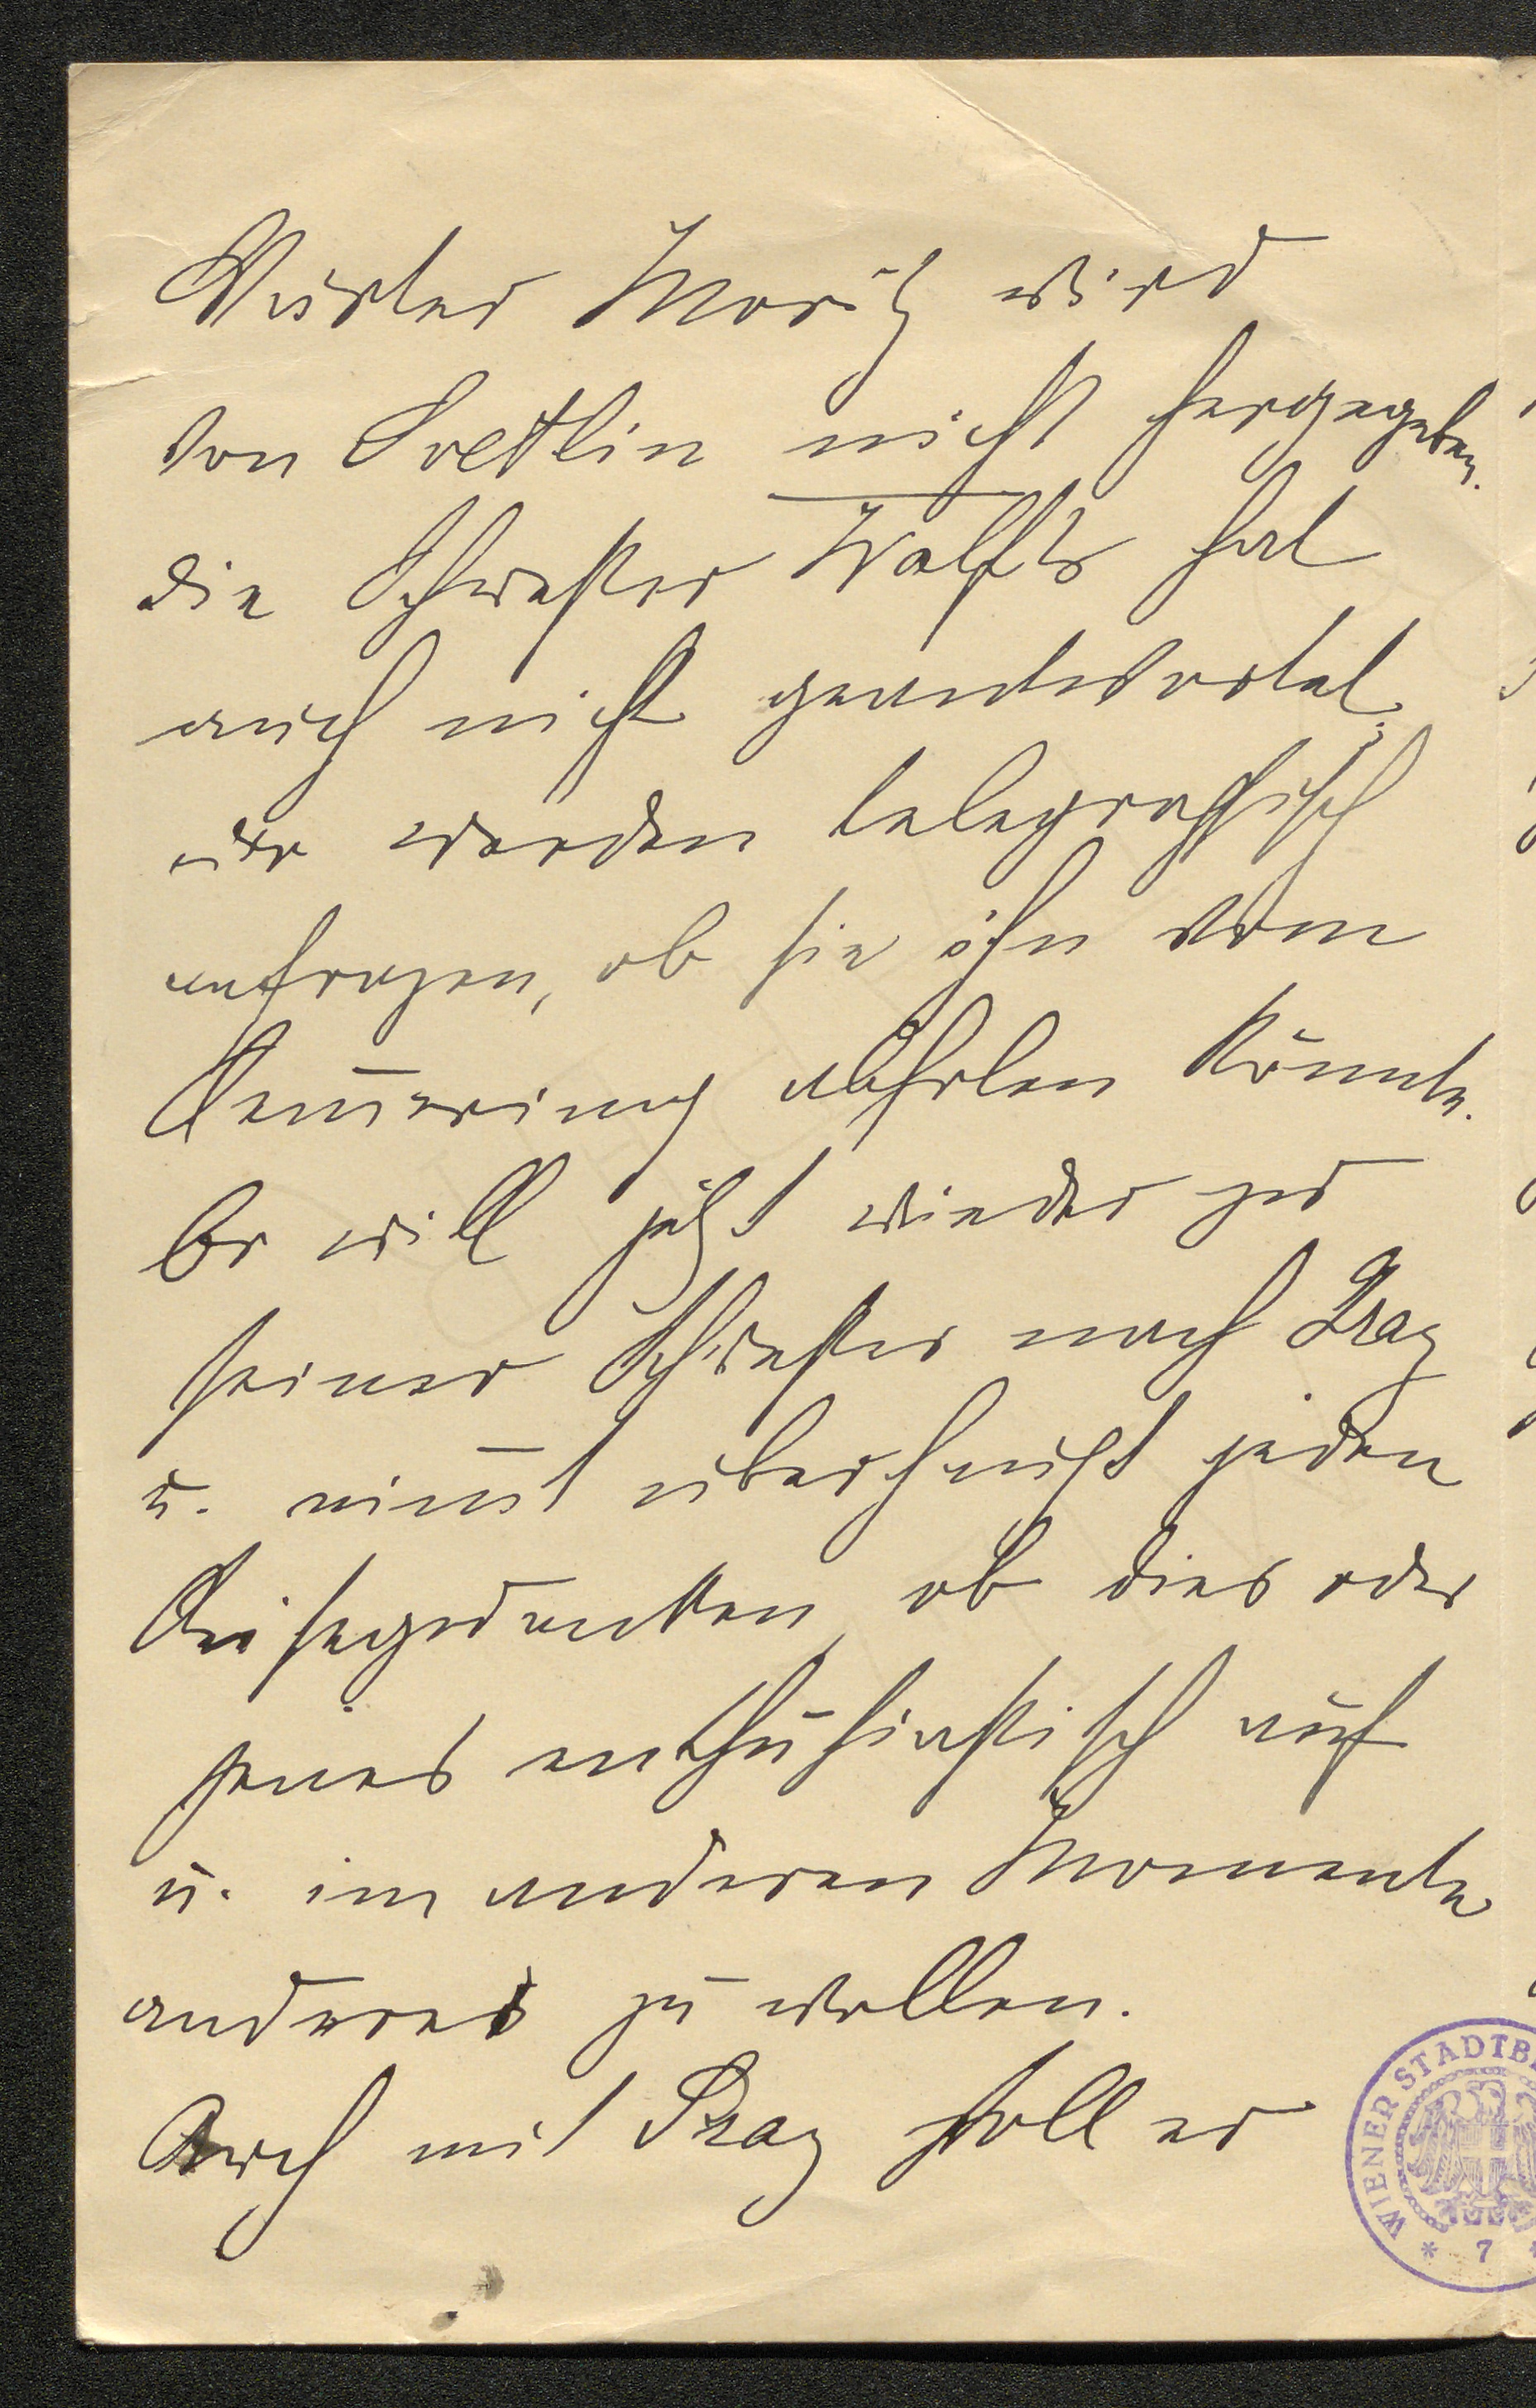 Wärter Moritz wird
von Svetlin nicht hergegeben.
die Schwester Wolf's hat
auch nicht geantwortet.
wir werden telegraphisch
anfragen, ob sie ihn vom
Semering abholen könnte.
Er will jetzt wieder zur
seiner Schwester nach Graz
u. nimt überhaupt jeden
Reisegedanken, ob dies oder
jenes enthusiastisch auf
u. im anderen Momente
anderes zu wollen.
Auch mit Graz soll er
WIENER STADTB
* 7 *